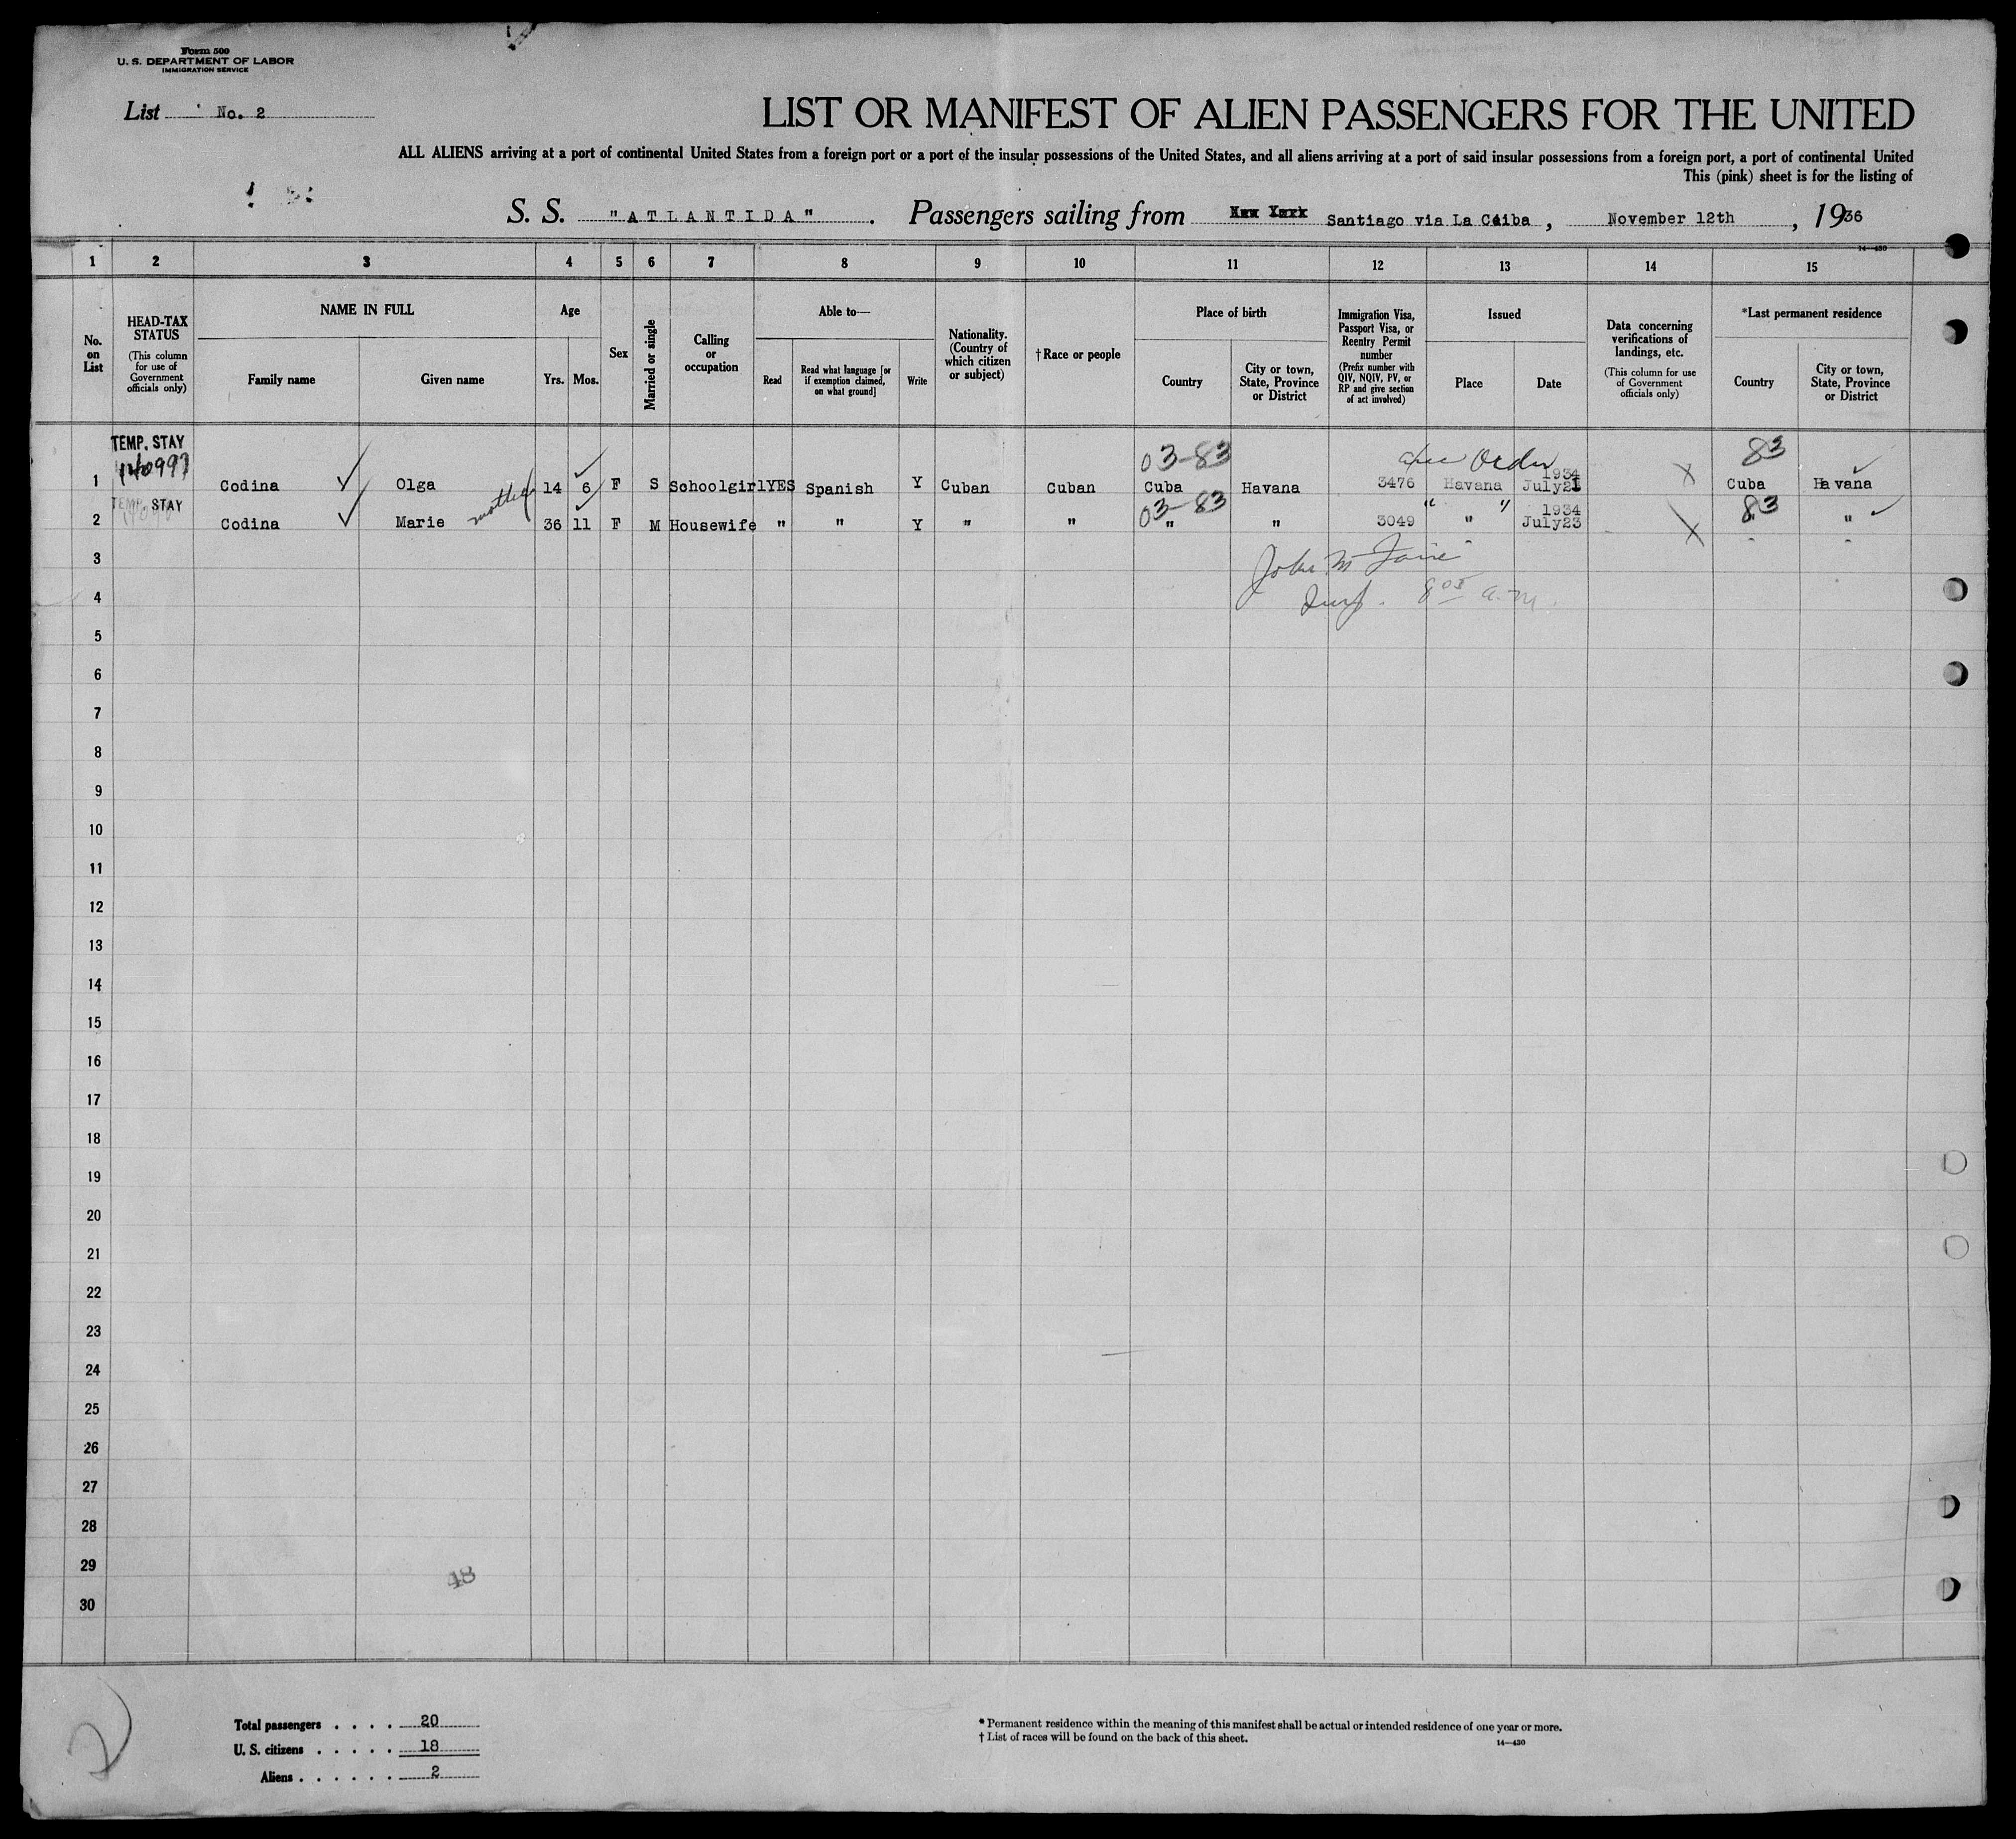 Form 500
U. S. DEPARTMENT OF LABOR
IMMIGRATION SERVICE
List No. 2
LIST OR MANIFEST OF ALIEN PASSENGERS FOR THE UNITED
ALL ALIENS arriving at a port of continental United States from a foreign port or a port of the insular possessions of the United States, and all aliens arriving at a port of said insular possessions from a foreign port, a port of continental United
This (pink) sheet is for the listing of
S. S. "ATLANTIDA". Passengers sailing from New York Santiago via La Ceiba, November 12th, 1936
14—430
1 2 3 4 5 6 7 8 9 10 11 12 13 14 15
No. on List
HEAD-TAX STATUS
(This column for use of Government officials only)
NAME IN FULL
Family name
Given name
Age
Yrs. Mos.
Sex
Married or single
Calling or occupation
Able to—
Read
Read what language [or if exemption claimed, on what ground]
Write
Nationality. (Country of which citizen or subject)
†Race or people
Place of birth
Country
City or town, State, Province or District
Immigration Visa, Passport Visa, or Reentry Permit number
(Prefix number with QIV, NQIV, PV, or RP and give section of act involved)
Issued
Place
Date
Data concerning verifications of landings, etc.
(This column for use of Government officials only)
*Last permanent residence
Country
City or town, State, Province or District
TEMP. STAY
03-83 Order 83
1 Codina Olga 14 6 F S Schoolgirl YES Spanish Y Cuban Cuban Cuba Havana 3476 Havana 1934 July21 X Cuba Havana
TEMP. STAY mother 03-83 " " 83
2 Codina Marie 36 11 F M Housewife " " Y " " " " 3049 " 1934 July23 X " "
3
John M
4
Insp. 8 05 a.m.
5
6
7
8
9
10
11
12
13
14
15
16
17
18
19
20
21
22
23
24
25
26
27
28
29
48
30
2
Total passengers . . . . 20
U. S. citizens . . . . . 18
Aliens . . . . . . 2
* Permanent residence within the meaning of this manifest shall be actual or intended residence of one year or more.
† List of races will be found on the back of this sheet.
14—430